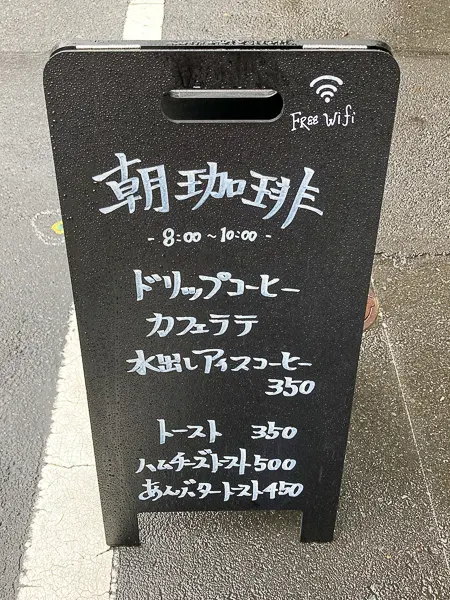 FREE Wifi
朝珈琲
- 8:00 ~ 10:00 -
ドリップコーヒー
カフェラテ
水出しアイスコーヒー
350
トースト 350
ハムチーズトースト 500
あんバタートースト 450